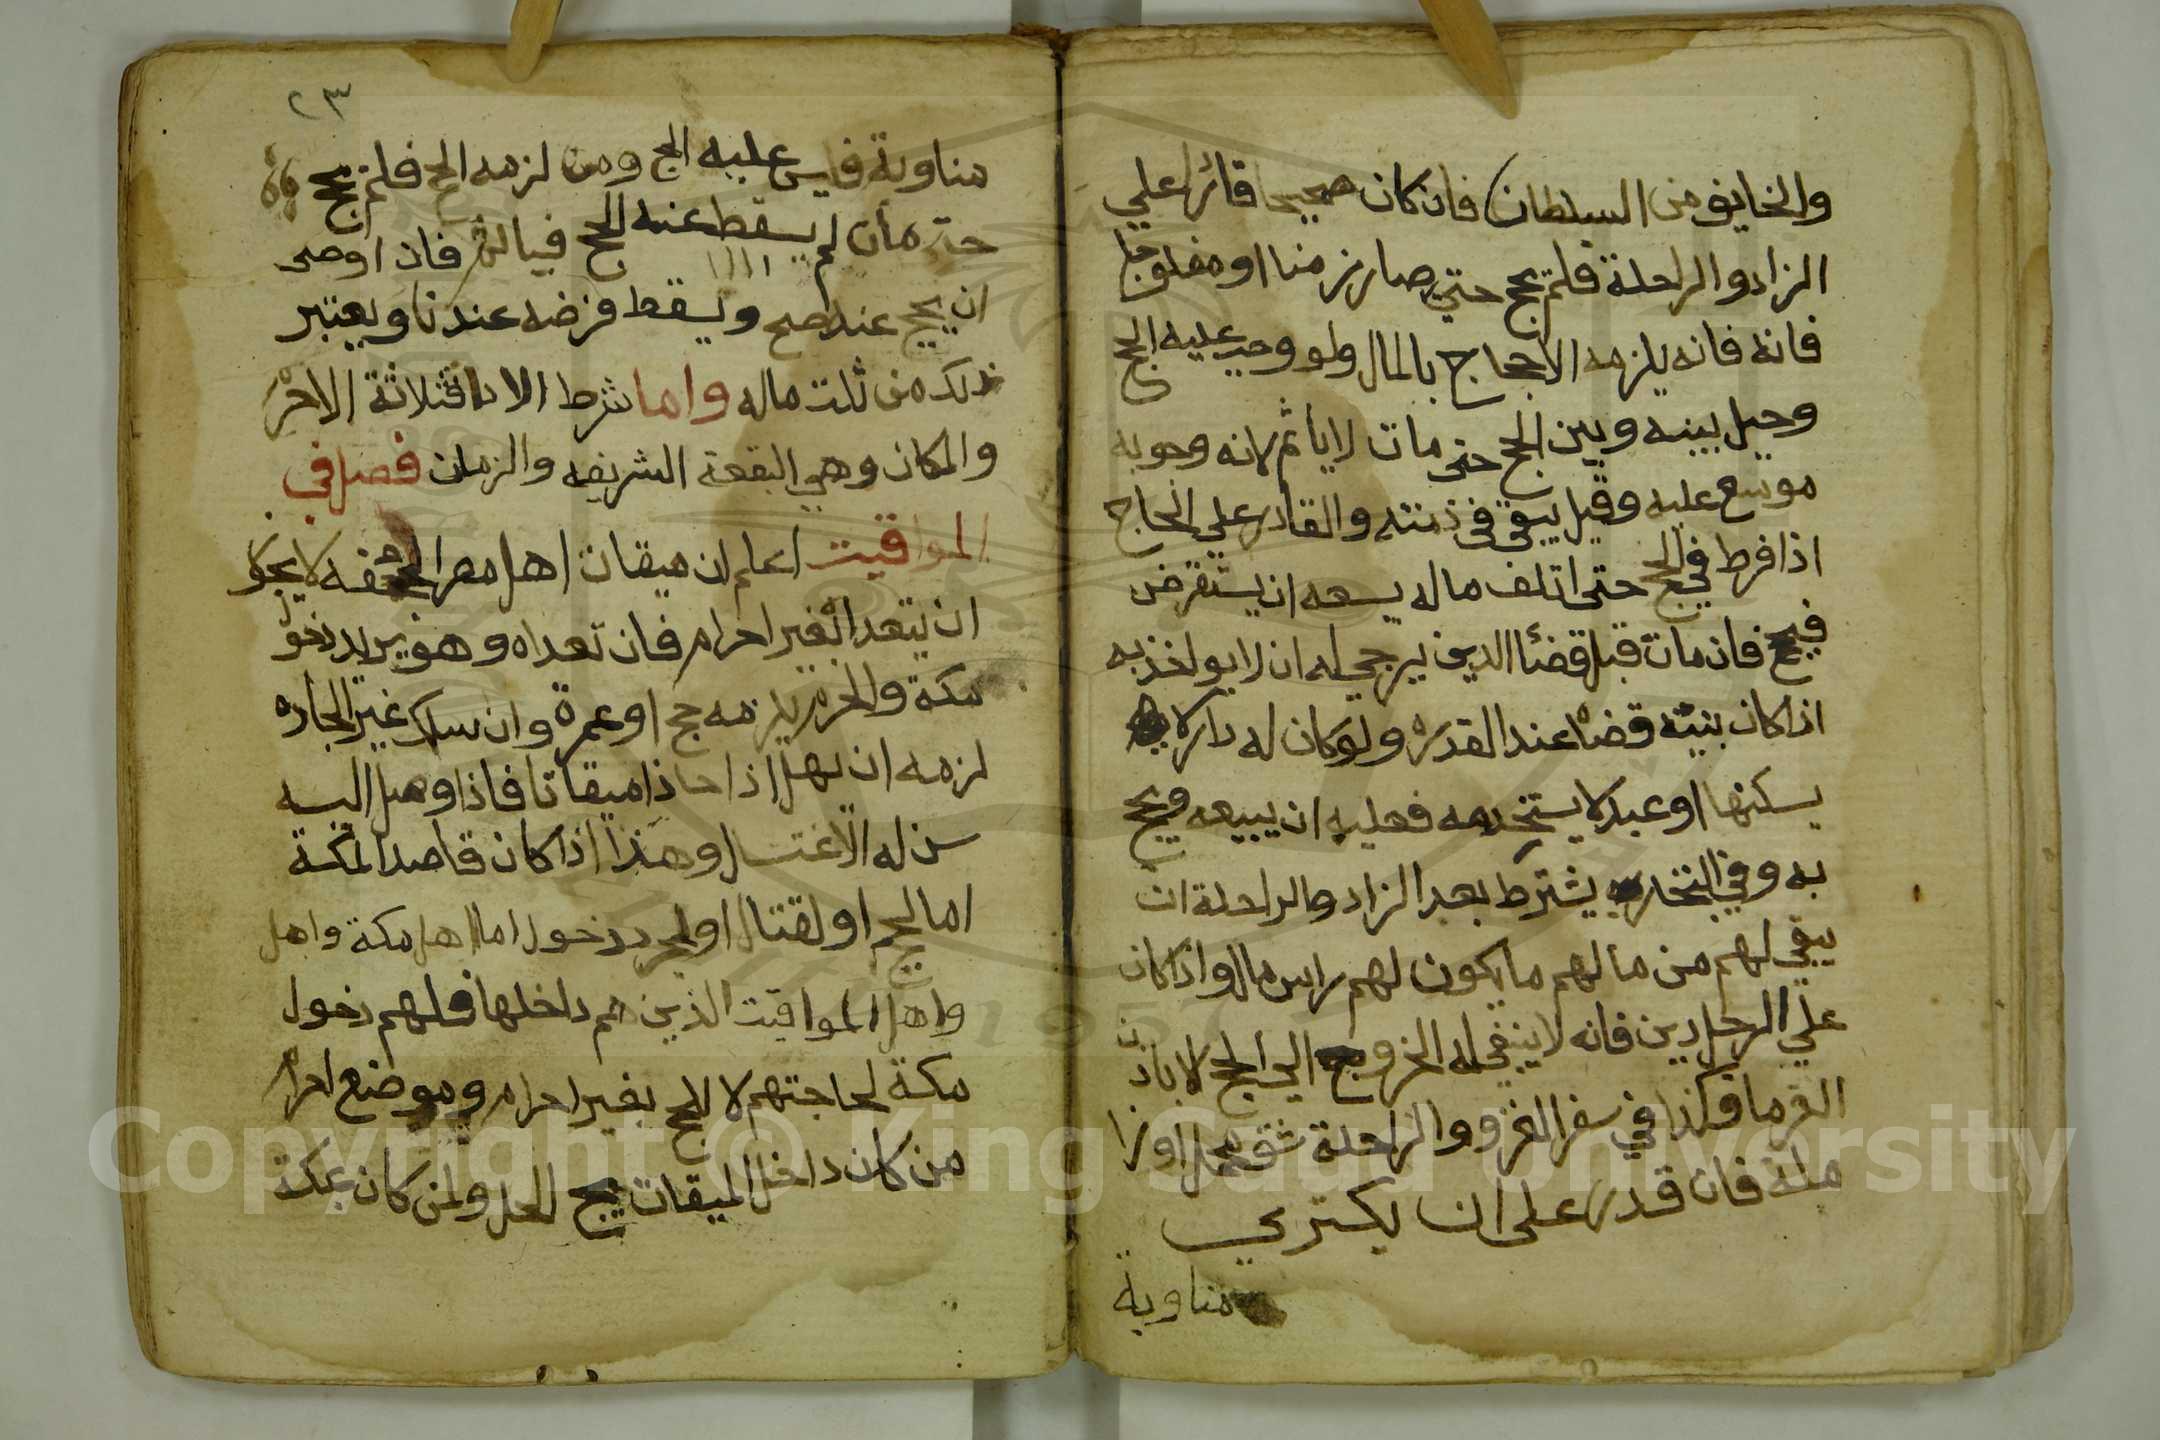 والخايف من السلطان فان كان صحيحا قادرا علي
الزاد والراحلة فلم يحج حتي صار زمنا او مفلوجا
فانه فانه يلزمه الاحجاج بالمال ولو وجب عليه الحج
وحيل بينه وبين الحج حتى مات لا ياثم لانه وجوبه
موسع عليه وقيل يبقى في ذمته والقادر علي الحاج
اذا فرط في الحج حتى اتلف ماله يسعه ان يستقرض
فيحج فان مات قبل قضا الدين يرجي له ان لا يواخذ به
اذا كان بنيته قضاه عند القدره ولو كان له دار لا
يسكنها او عبد لا يستخدمه فعليه ان يبيعه ويحج
به وفي يشترط بعد الزاد والراحلة ان
يبقي لهم من مالهم ما يكون لهم راس مال واذا كان
علي الرجل دين فانه لا ينبغي له الخروج الي الحج الا باذن
الغرما وكذا في سفر الغزو والراحلة شق محمل او زا
ملة فان قدر على ان يكتري
مناوبة
٢٣
مناوبة فليس عليه الحج ومن لزمه الحج فلم يحج
حتى مات لم يسقط عنه الحج فياثم فان اوصى
ان يحج عنه صح ويسقط فرضه عندنا ويعتبر
ذلك من ثلث ماله واما شرط الادا فثلاثة الاحرام
والمكان وهي البقعة الشريفه والزمان فصل في
المواقيت اعلم ان ميقات اهل مصر الجحفه لا يجوز
ان يتعداه بغير احرام فان تعداه وهو يريد دخول
مكة والحرم يلزمه حج او عمرة وان سلك غير الجاده
لزمه ان يهل اذا حاذا ميقاتا فاذا وصل اليه
سن له الاغتسال وهذا اذا كان قاصدا لمكة
اما لحج او لقتال او لمجرد دخول اما اهل مكة واهل
واهل المواقيت الذين هم داخلها فلهم دخول
مكة لحاجتهم لا للحج بغير احرام وموضع احرام
من كان داخل الميقات الحل ولمن كان بمكة
Copyright © King Saud University